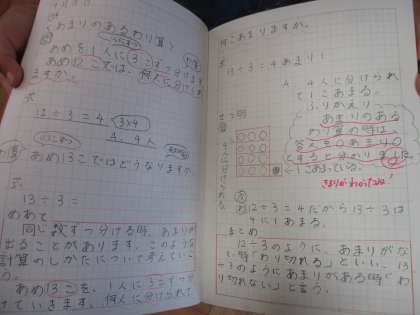 あまりのあるわり算
あめを1人に3こずつ分けます。
あめ12こでは、何人に分けられ
ますか。
式
12÷3=4 3×4
A. 4人
あめ13こではどうなりますか。
式
13÷3=
めあて
同じ数ずつ分ける時、あまりが
出ることがあります。このような
計算のしかたについて考えていこ
う。
あめ13こを、1人に3こずつ分け
ていきます。何人に分けられて
何こあまりますか。
式
13÷3=4あまり1
A. 4人に分けられ
て1こあまる。
ふりかえり
あまりのある
わり算の時は、
答え
1こあまっている。
12÷3=4だから13÷3は
4に1あまる。
まとめ
12÷3のように、あまりがな
い時「わり切れる」といい、13
÷3のようにあまりがある時「わ
り切れない」と言う。